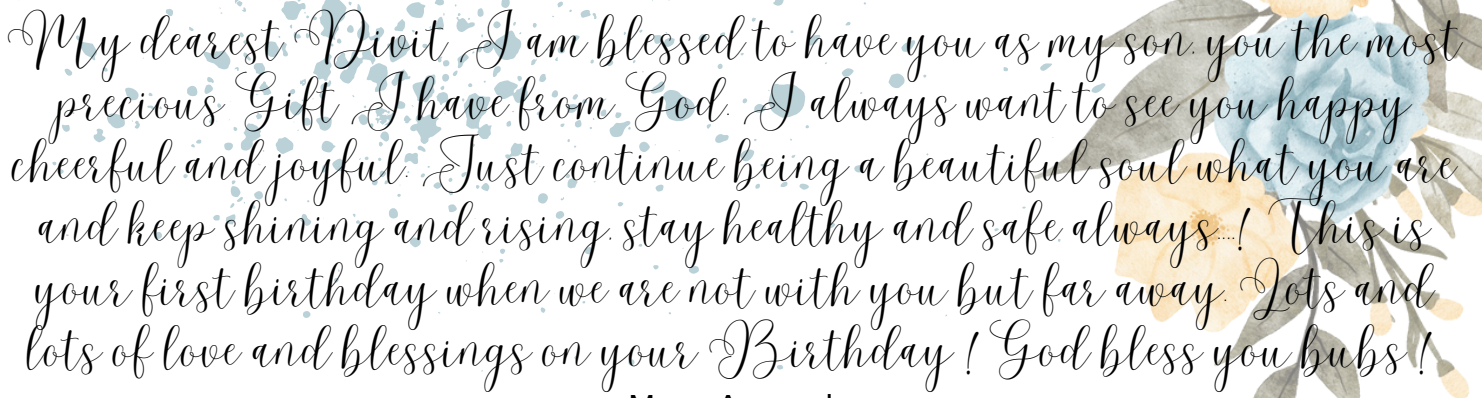 My dearest Divit, I am blessed to have you as my son. you the most
precious Gift I have from God. I always want to see you happy
cheerful and joyful. Just continue being a beautiful soul what you are
and keep shining and rising. stay healthy and safe always....! This is
your first birthday when we are not with you but far away. Lots and
lots of love and blessings on your Birthday ! God bless you bubs !